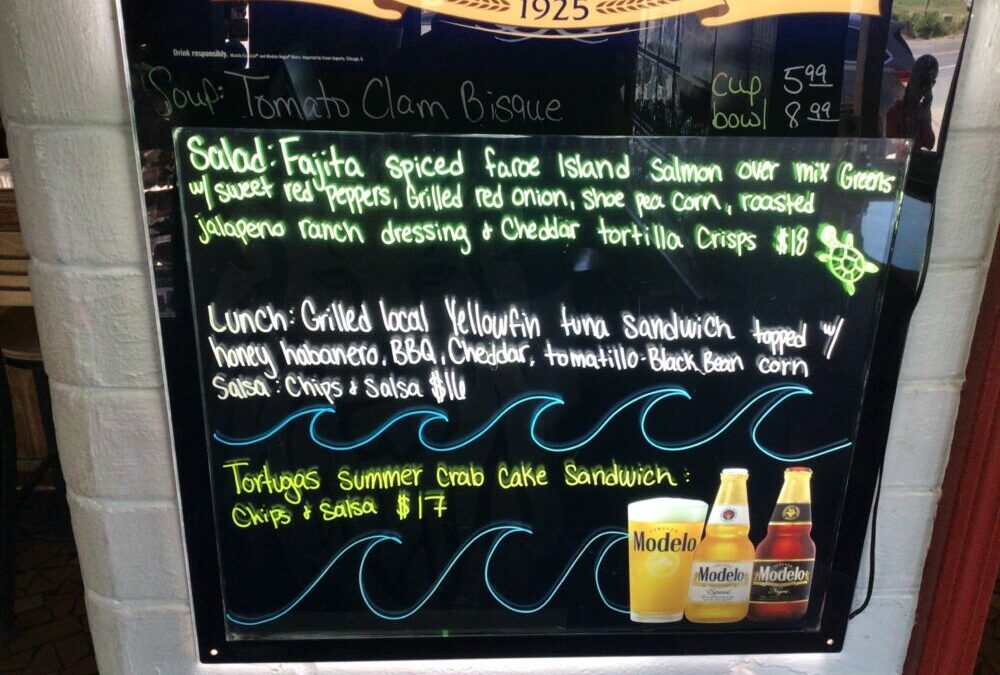 1925
Drink responsibly.
Soup: Tomato Clam Bisque cup 5.99
bowl 8.99
Salad: Fajita spiced faroe Island Salmon over mix Greens
w/ sweet red peppers, Grilled red onion, shoe pea corn, roasted
jalapeno ranch dressing & Cheddar tortilla Crisps $18
Lunch: Grilled local Yellowfin tuna sandwich topped w/
honey habanero, BBQ, Cheddar, tomatillo-Black Bean corn
Salsa: Chips & Salsa $16
Tortugas Summer Crab Cake Sandwich:
Chips & Salsa $17
Modelo
Modelo
Especial
Modelo
Negra